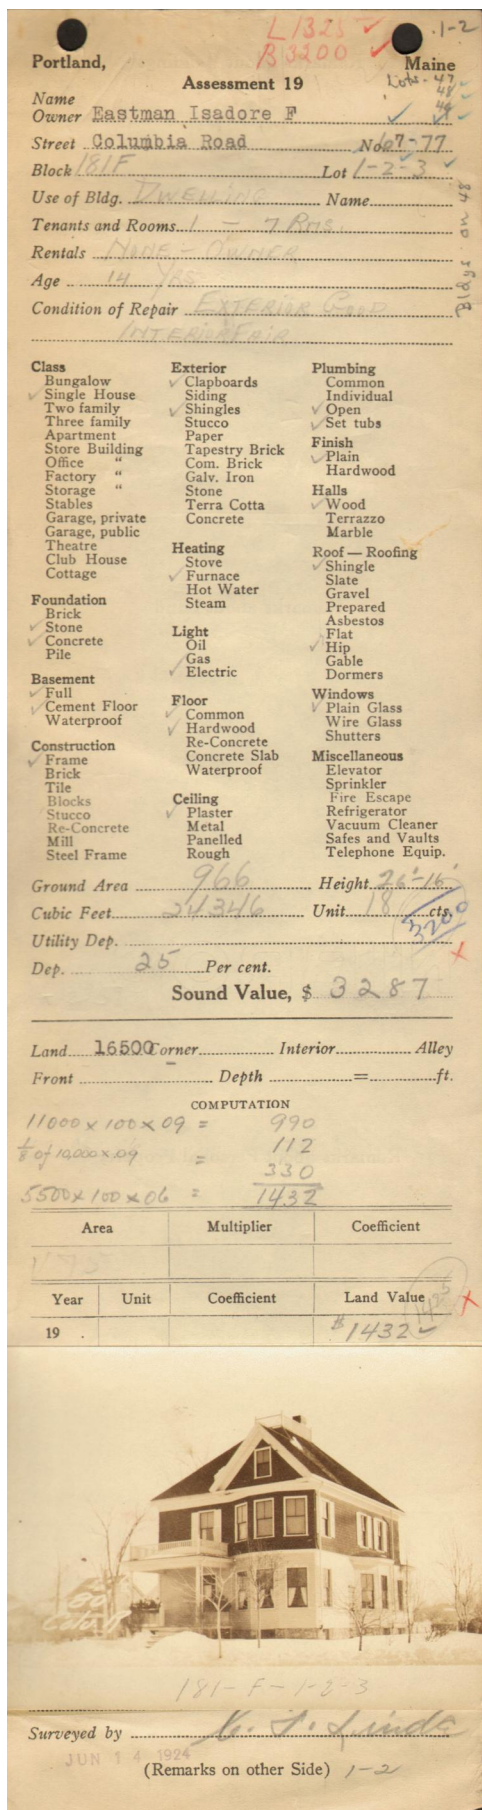 L 1325
B 3200
1-2
Portland, Maine
Assessment 19
Lots - 47
48
49
Name
Owner Eastman Isadore F
Street Columbia Road No. 67-77
Block 181F Lot 1-2-3
Bldgs on 48
Use of Bldg. Dwelling Name
Tenants and Rooms 1 - 7 Rms.
Rentals None - Owner
Age 14 Yrs
Condition of Repair Exterior Good
Interior Fair
Class
Bungalow
Single House
Two family
Three family
Apartment
Store Building
Office "
Factory "
Storage "
Stables
Garage, private
Garage, public
Theatre
Club House
Cottage
Foundation
Brick
Stone
Concrete
Pile
Basement
Full
Cement Floor
Waterproof
Construction
Frame
Brick
Tile
Blocks
Stucco
Re-Concrete
Mill
Steel Frame
Exterior
Clapboards
Siding
Shingles
Stucco
Paper
Tapestry Brick
Com. Brick
Galv. Iron
Stone
Terra Cotta
Concrete
Heating
Stove
Furnace
Hot Water
Steam
Light
Oil
Gas
Electric
Floor
Common
Hardwood
Re-Concrete
Concrete Slab
Waterproof
Ceiling
Plaster
Metal
Panelled
Rough
Plumbing
Common
Individual
Open
Set tubs
Finish
Plain
Hardwood
Halls
Wood
Terrazzo
Marble
Roof — Roofing
Shingle
Slate
Gravel
Prepared
Asbestos
Flat
Hip
Gable
Dormers
Windows
Plain Glass
Wire Glass
Shutters
Miscellaneous
Elevator
Sprinkler
Fire Escape
Refrigerator
Vacuum Cleaner
Safes and Vaults
Telephone Equip.
Ground Area 966 Height 26'-16'
Cubic Feet 24346 Unit 18 cts.
3200
Utility Dep.
Dep. 25 Per cent.
Sound Value, $ 3287
Land 16500 Corner Interior Alley
Front Depth = ft.
COMPUTATION
11000 x 100 x 09 = 990
1/8 of 10,000 x .09 = 112
330
5500 x 100 x 06 = 1432
Area Multiplier Coefficient
Year Unit Coefficient Land Value
1425
19 . $1432
80
181-F-1-2-3
Surveyed by
JUN 14 1924
(Remarks on other Side) 1-2